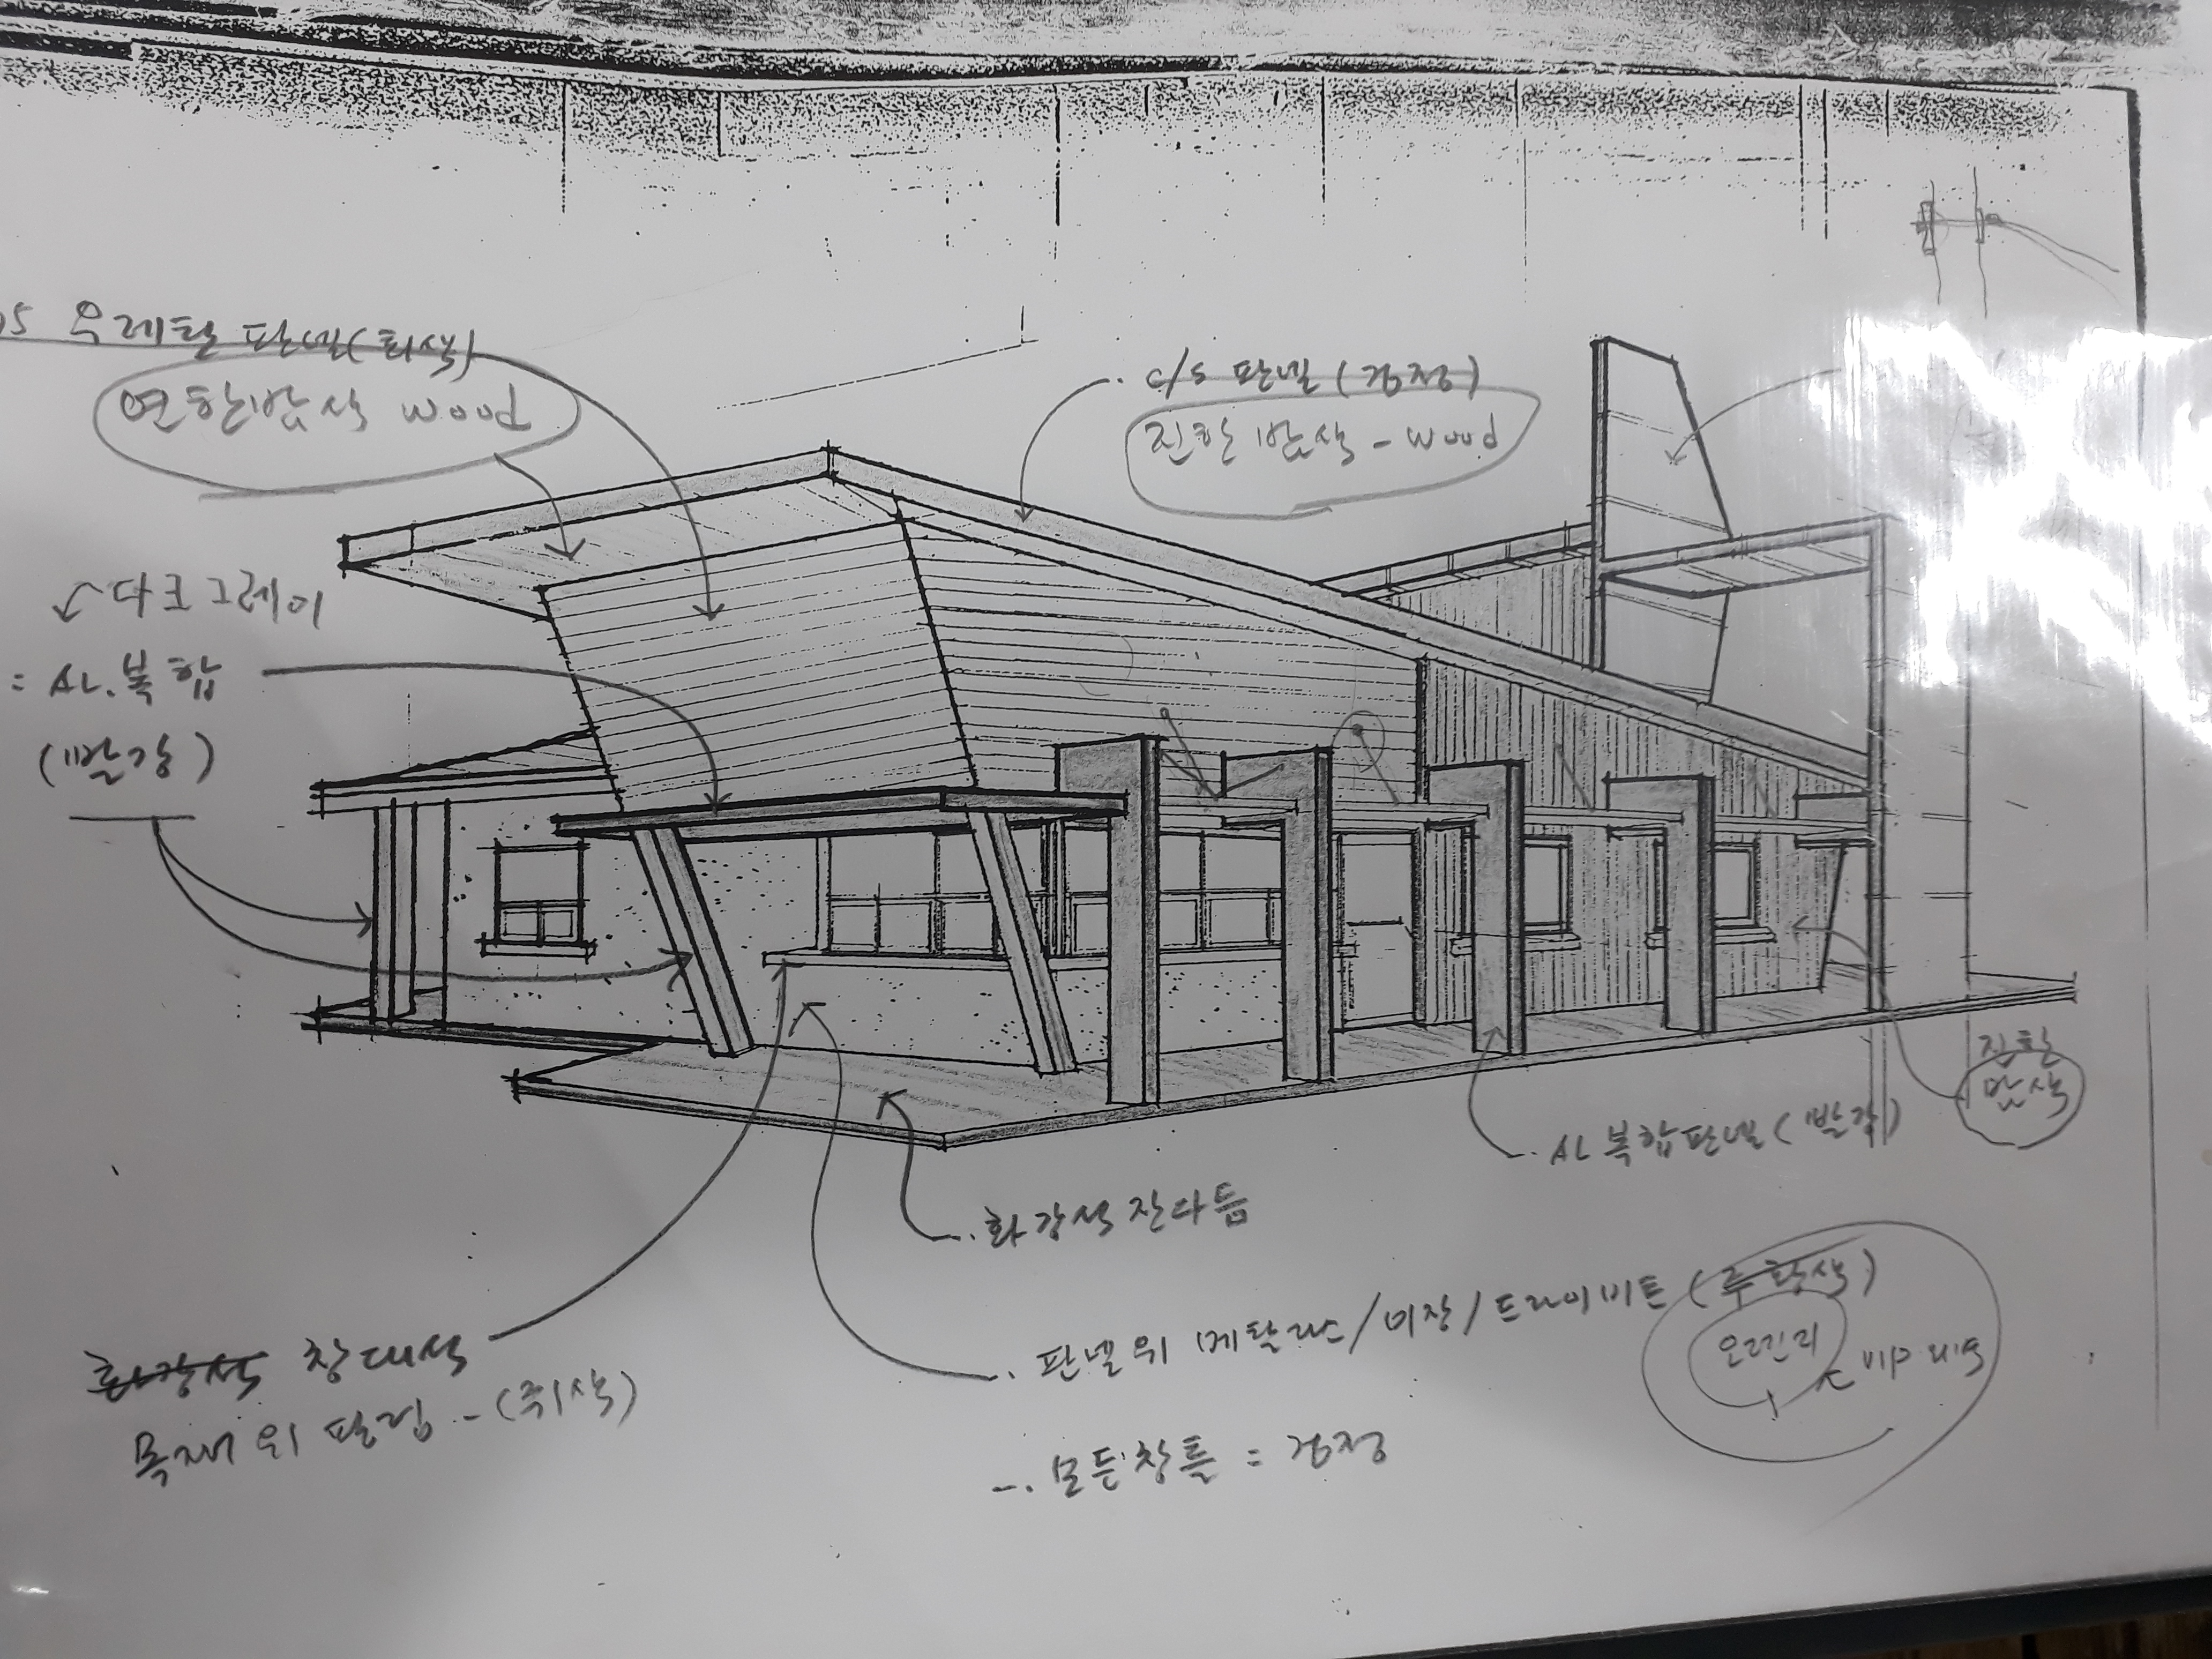 우레탄 판넬(회색)
연한밤색 wood
c/s 판넬 (검정)
진한 밤색 - wood
다크그레이
= AL.복합
(빨강)
진한
밤색
AL 복합판넬 (빨강)
화강석 잔다듬
화강석 창대석
목재 위 필림 - (쥐색)
판넬위 메탈라스/미장/드라이비트 (주황색)
오렌지
모든창틀 = 검정